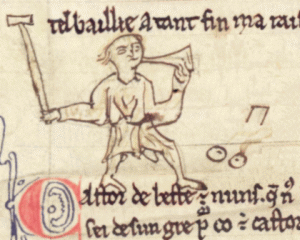 tel baillie A tant fin ma rai
Castor de beste ⁊ nuns. q̄ nō
sei desun gre p̄ co ⁊ castor